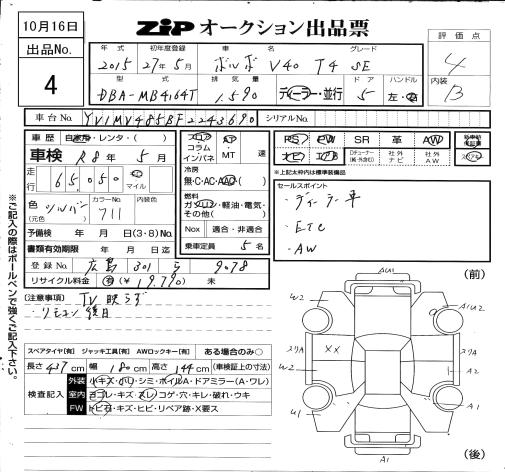 10月16日
出品No.
4
ZiP オークション出品票
年式 初年度登録 車名 グレード
2015 27年5月 ボルボ V40 T4 SE
型式 排気量 ドア ハンドル
DBA-MB4164T 1,590 ディーラー・並行 5 左・右
評価点
4
内装
B
車台No. YV1MV485BF2243690 シリアルNo.
車歴 自家用・レンタ・( )
車検 R8年5月
走行 65,050 km マイル
色 (元色) シルバー カラーNo. 711 内装色
予備検 年 月 日(3・8)No.
書類有効期限 年 月 日迄
登録No. 広島 301 ら 9078
リサイクル料金 有(¥19,790) 未
フロア コラム インパネ
AT・MT 速
冷房
無・C・AC・AAC
燃料
ガソリン・軽油・電気・その他( )
Nox 適合・非適合
乗車定員 5名
PS PW SR 革 AW
ナビ エアB Dチューナー(純・外含む) 社外ナビ 社外AW
※上記太枠内は標準装備品
セールスポイント
・ディーラー車
・ETC
・AW
(注意事項) TV映らず
・リモコン後日
※ご記入の際はボールペンで強くご記入下さい。
スペアタイヤ【有】 ジャッキ工具【有】 AWロックキー【有】 ある場合のみ○
長さ437cm 幅180cm 高さ144cm (車検証上の寸法)
検査記入
外装 小キズ・凹・シミ・ボイルA・ドアミラー(A・ワレ)
室内 ヨゴレ・キズ・スレ・コゲ・穴・キレ・破れ・ウキ
FW トビ石・キズ・ヒビ・リペア跡・X要ス
(前)
AU1
W2
AU2
スリA
XX
スリA
W2
A2
U1
A1
A1
(後)